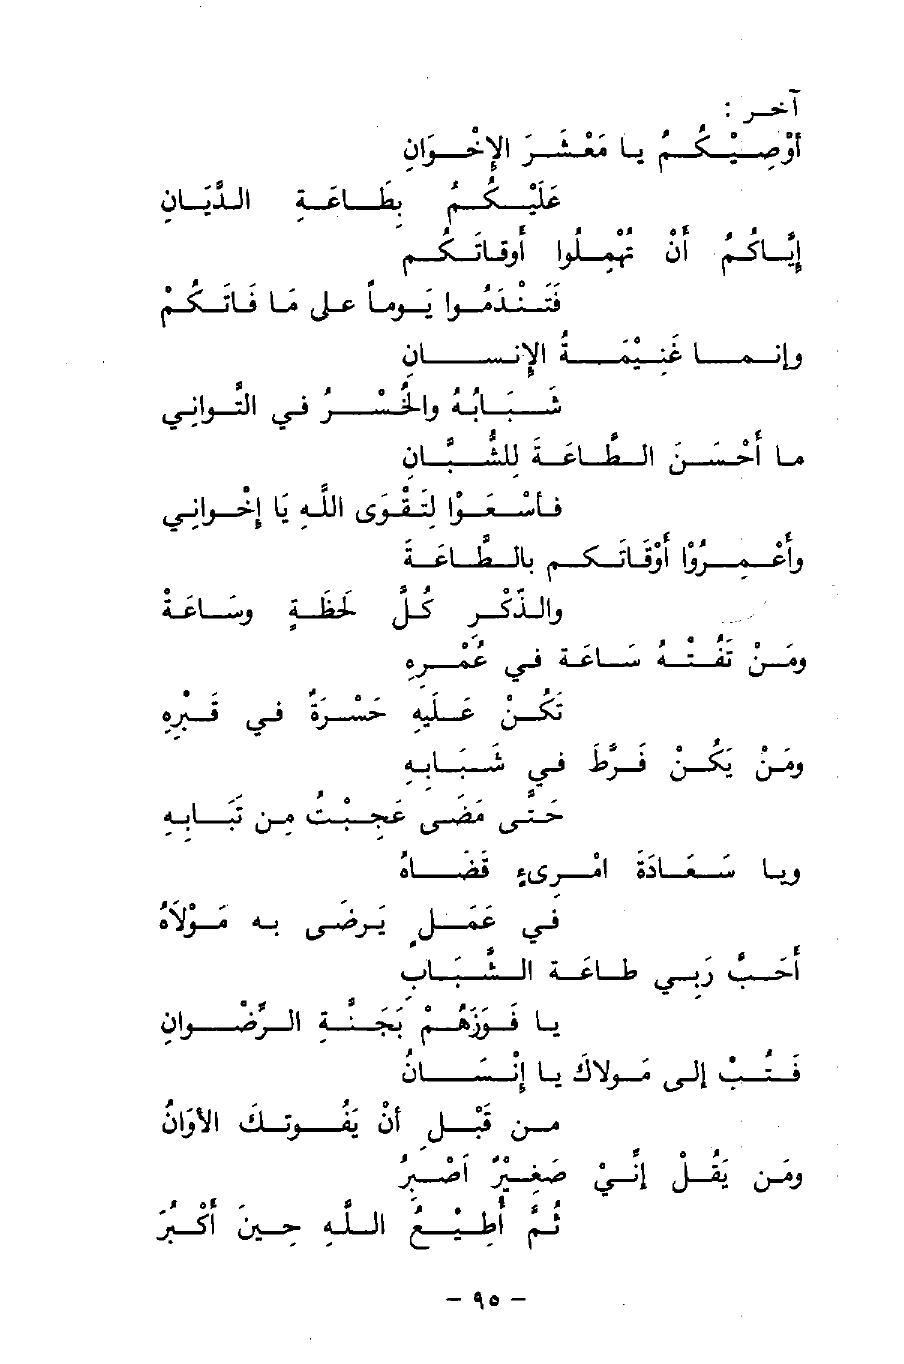 آخر :
أوْصِيْكُمُ يا مَعْشَرَ الإِخْوَانِ
عَلَيْكُمُ بِطَاعَةِ الدَّيَانِ
إيَّاكُمُ أَنْ تُهْمِلُوا أَوقاتَكُم
فَتَنْدَمُوا يَوماً على مَا فَاتَكُمْ
وإنما غَنِيْمَةُ الإِنسانِ
شَبَابُهُ والخُسْرُ في التَّوانِي
ما أَحْسَنَ الطَّاعَةَ لِلشُّبَّانِ
فأسْعَوْا لِتَقْوَى اللَّهِ يَا إِخْوانِي
وأَعْمِرُوْا أَوْقَاتَكم بالطَّاعَةَ
والذِّكْرِ كُلَّ لَحظَةٍ وسَاعَةْ
ومَنْ تَفُتْهُ سَاعَة في عُمْرِهِ
تَكُنْ عَلَيهِ حَسْرَةً في قَبْرِهِ
ومَنْ يَكُنْ فَرَّطَ في شَبَابِهِ
حَتَّى مَضَى عَجِبْتُ مِن تَبَابِهِ
ويا سَعَادَةَ امْرِىءٍ قَضَاهُ
في عَمَلٍ يَرضَى به مَوْلَاهُ
أَحَبَّ رَبِي طاعَة الشَّبَابِ
يا فَوَزَهُمْ بَجَنَّةِ الرِّضْوانِ
فَتُبْ إلى مَولاكَ يا إِنْسَانُ
من قَبْلِ أنْ يَفُوتكَ الأوَانُ
ومَن يَقُلْ إنَّيْ صَغِيْرٌ اَصْبِرُ
ثُمَّ أُطِيْعُ اللَّهِ حِينَ أَكْبُرَ
– ٩٥ –